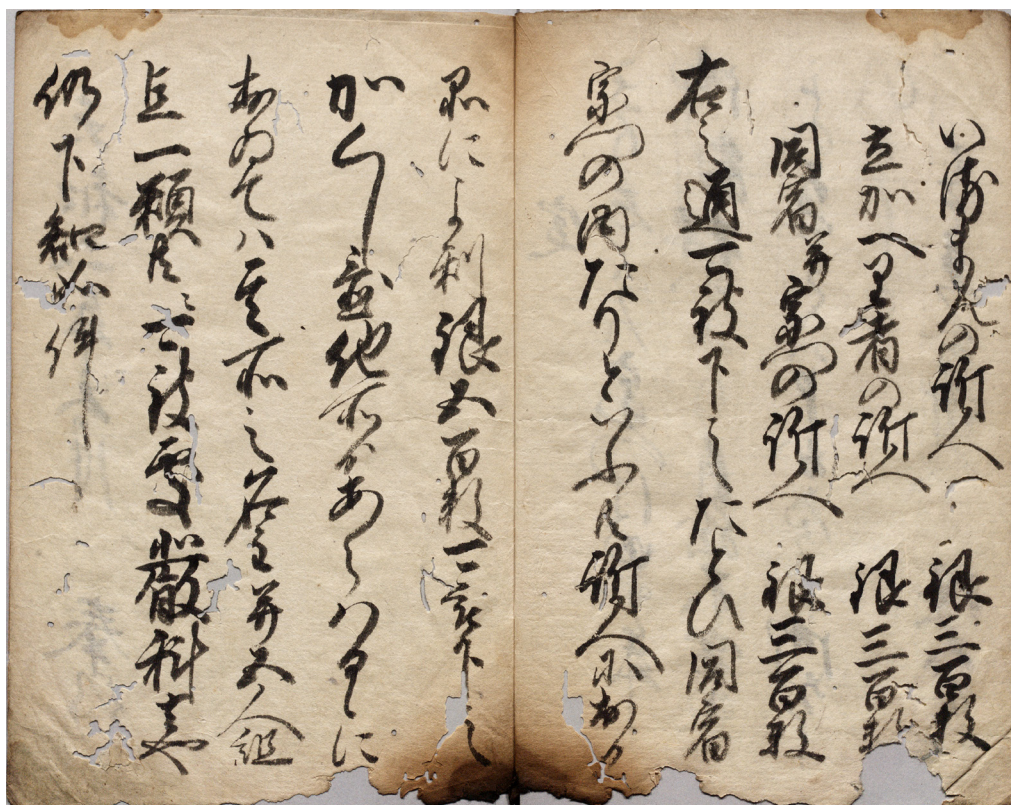 いるまんの訴人　銀三百枚
立かへり者の訴人　銀三百枚
同宿并宗門の訴人　銀三百枚
右之通可被下之たとひ同宿
宗門の内たりといふ共訴人に出る
品により銀五百枚可被下之
かくし置他所よりあらハるゝに
おゐてハ其所之名主并五人組
迄一類共ニ可被処厳科者也
仍下知如件